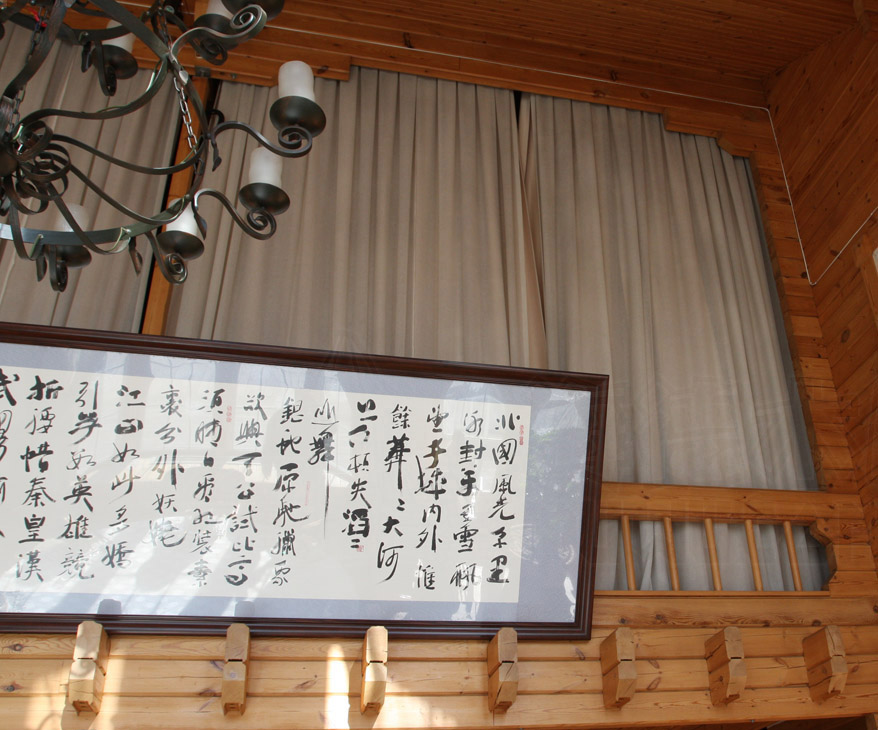 北國風光千里
冰封万里雪飄
望長城内外惟
餘莽〻大河
上下頓失滔〻
山舞
銀蛇原馳臘象
欲與天公試比高
須晴日看紅裝素
裹分外妖嬈
江山如此多嬌
引無數英雄競
折腰惜秦皇漢
武